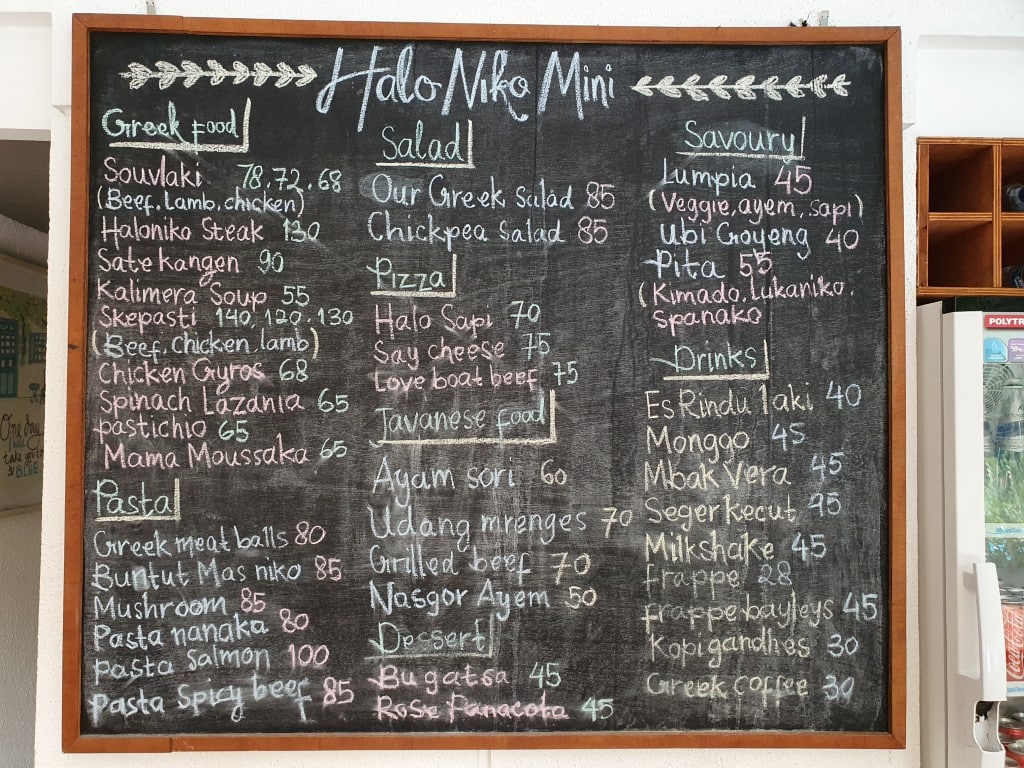 Halo Niko Mini
Greek food
Souvlaki 78,72,68
(Beef, lamb, chicken)
Haloniko Steak 130
Sate kangen 90
Kalimera Soup 55
Skepasti 140, 120, 130
(Beef, Chicken, lamb)
Chicken Gyros 68
Spinach Lazania 65
pastichio 65
Mama Moussaka 65
Pasta
Greek meat balls 80
Buntut Mas niko 85
Mushroom 85
Pasta nanaka 80
pasta salmon 100
pasta Spicy beef 85
Salad
Our Greek Salad 85
Chickpea Salad 85
Pizza
Halo Sapi 70
Say cheese 75
Love boat beef 75
Javanese food
Ayam sori 60
Udang mrenges 70
Grilled beef 70
Nasgor Ayem 50
Dessert
Bugatsa 45
Rose Panacota 45
Savoury
Lumpia 45
(Veggie, ayem, sapi)
Ubi Goyeng 40
Pita 55
(Kimado, Lukaniko.
spanako
Drinks
Es Rindu laki 40
Monggo 45
Mbak Vera 45
Seger kecut 45
Milkshake 45
frappe 28
frappe bayleys 45
Kopi gandhes 30
Greek coffee 30
One day
take you
BLUE
POLYTR
Coca-Cola